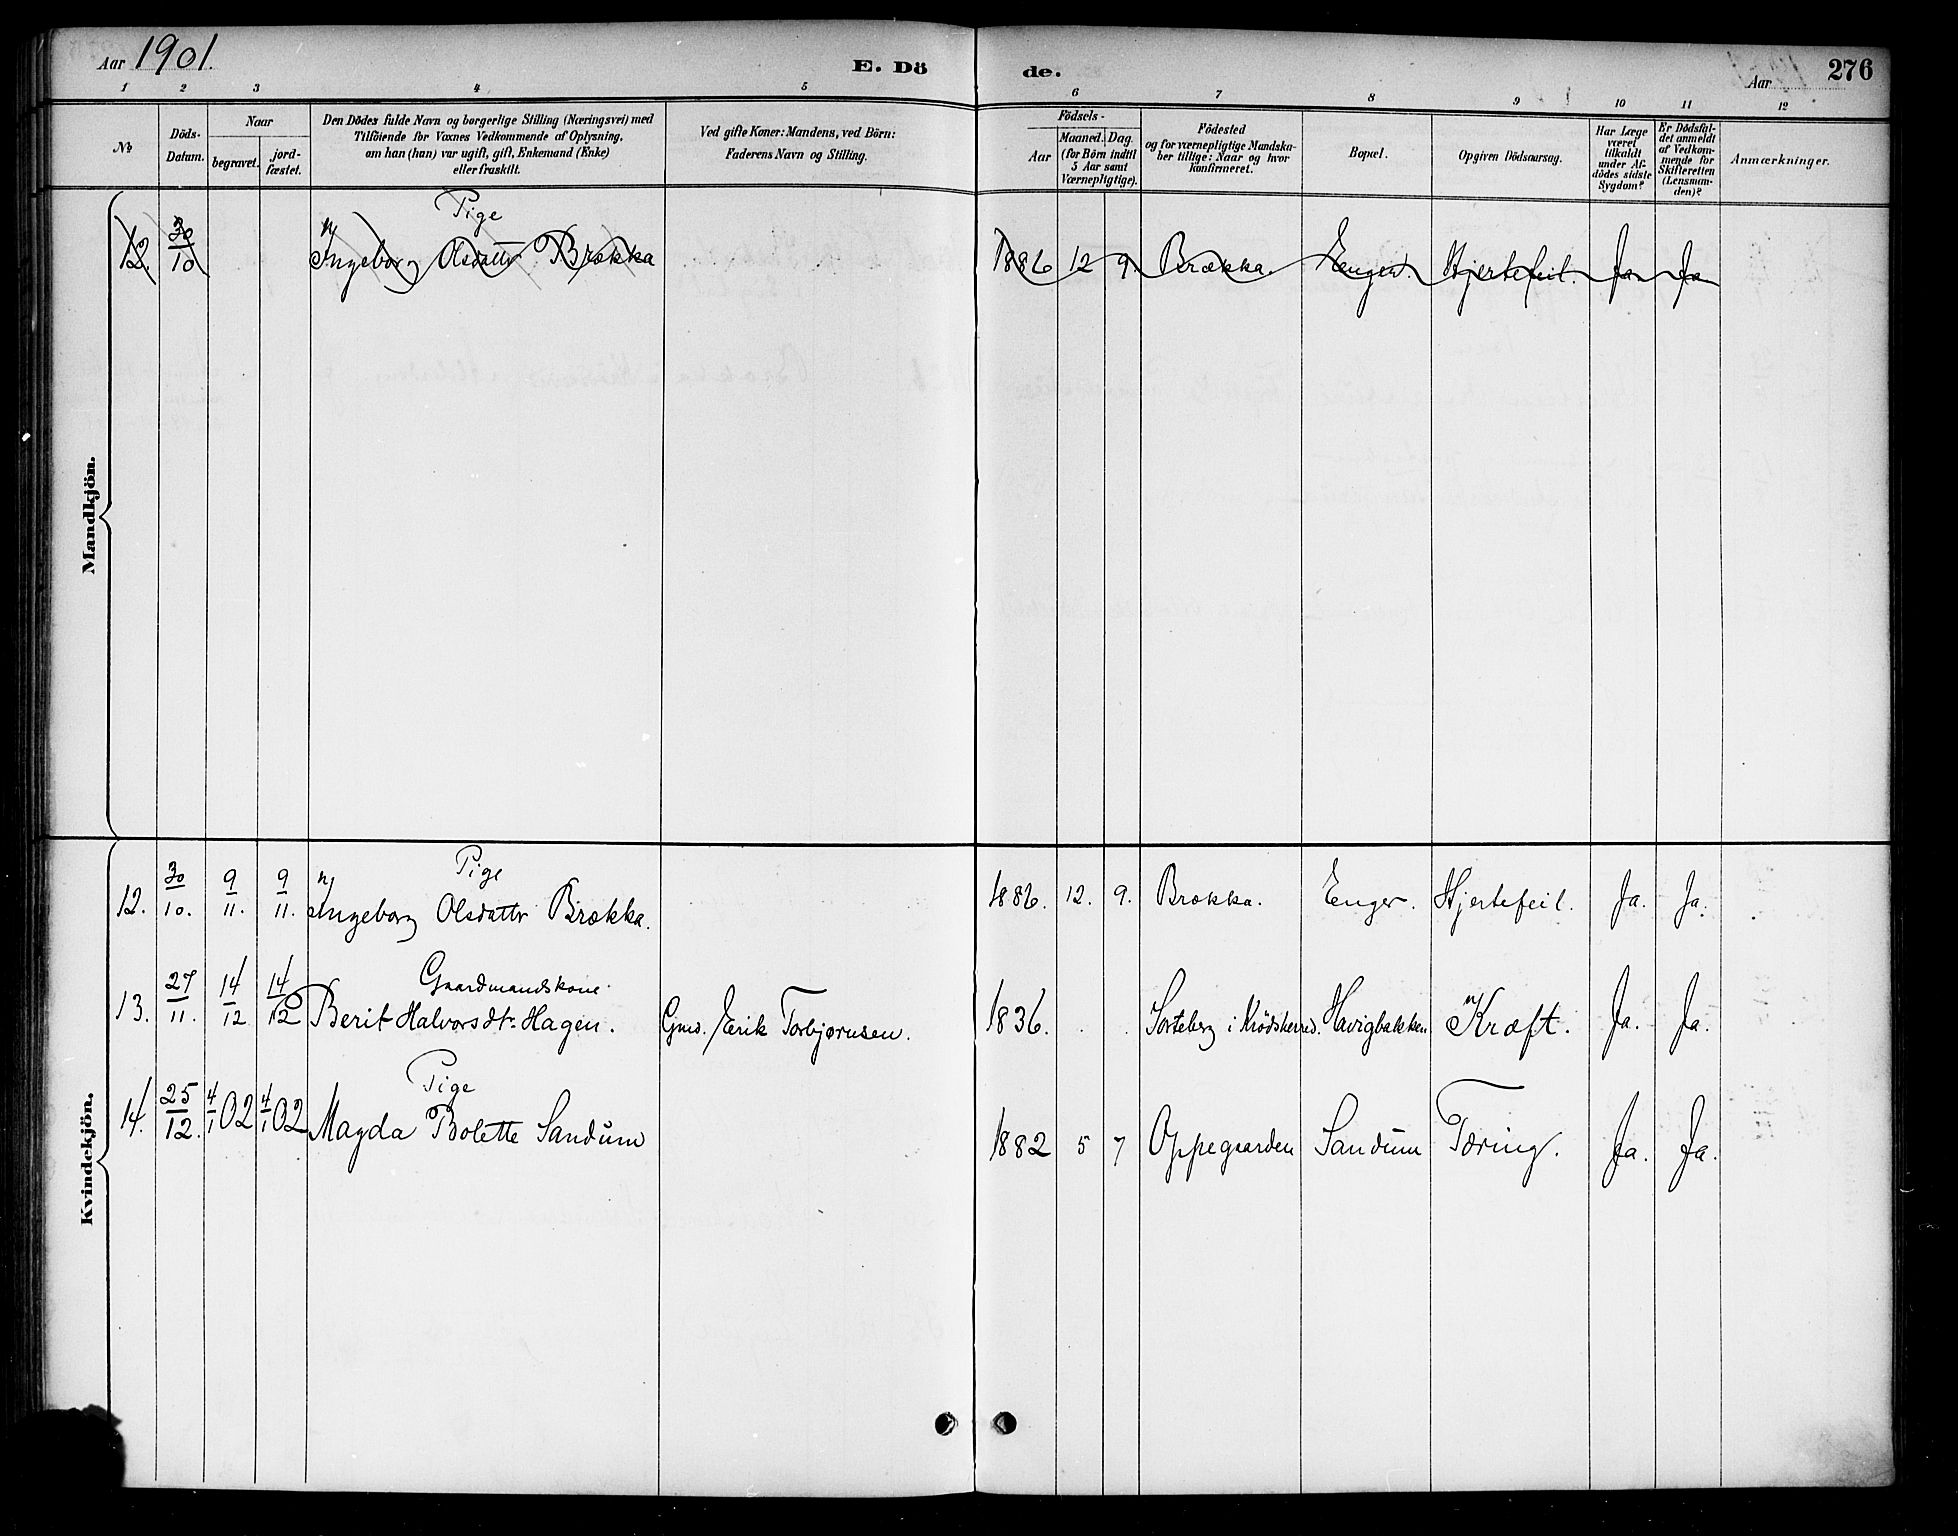 Aar 1901. E. Dö
de. Aar 276
1 2 3 4 5
6 7 8 9 10 11 12
No
Döds-Datum.
Naar
begravet. jordfæstet.
Den Dödes fulde Navn og borgerlige Stilling (Næringsvei) med
Tilföiende for Voxnes Vedkommende af Oplysning,
om han (hun) var ugift, gift, Enkemand (Enke)
eller fraskilt.
Ved gifte Koner: Mandens, ved Börn:
Faderens Navn og Stilling.
Födsels-
Aar
Maaned. Dag.
(for Börn indtil
5 Aar samt
Værnepligtige).
Födested
og for værnepligtige Mandskaber
tillige: Naar og hvor
konfirmeret.
Bopæl.
Opgiven Dödsaarsag.
Har Læge
været
tilkaldt
under Afdödes
sidste
Sygdom?
Er Dödsfaldet
anmeldt
af Vedkommende
for
Skifteretten
(Lensmanden)?
Anmærkninger.
Mandkjön.
Pige
12. 30/10 Ingeborg Olsdatter Brækka 1886 12 9. Brækka. Enger. Hjertefeil. Ja Ja
Kvindekjön.
Pige
12. 30/10. 9/11. 9/11. Ingeborg Olsdattr Brækka. 1886. 12. 9. Brækka. Enger. Hjertefeil. Ja. Ja.
Gaardmandskone
13. 27/11. 14/12 14/12 Berit Halvorsdtr Hagen. Gmd. Erik Torbjørnsen. 1836. Sorteberg i Krödsherred. Havigbakken Kræft. Ja. Ja.
Pige
14. 25/12. 4/1 02 4/1 02 Magda Bolette Sandum 1882 5 7 Oppegaarden Sandum Tæring. Ja. Ja.